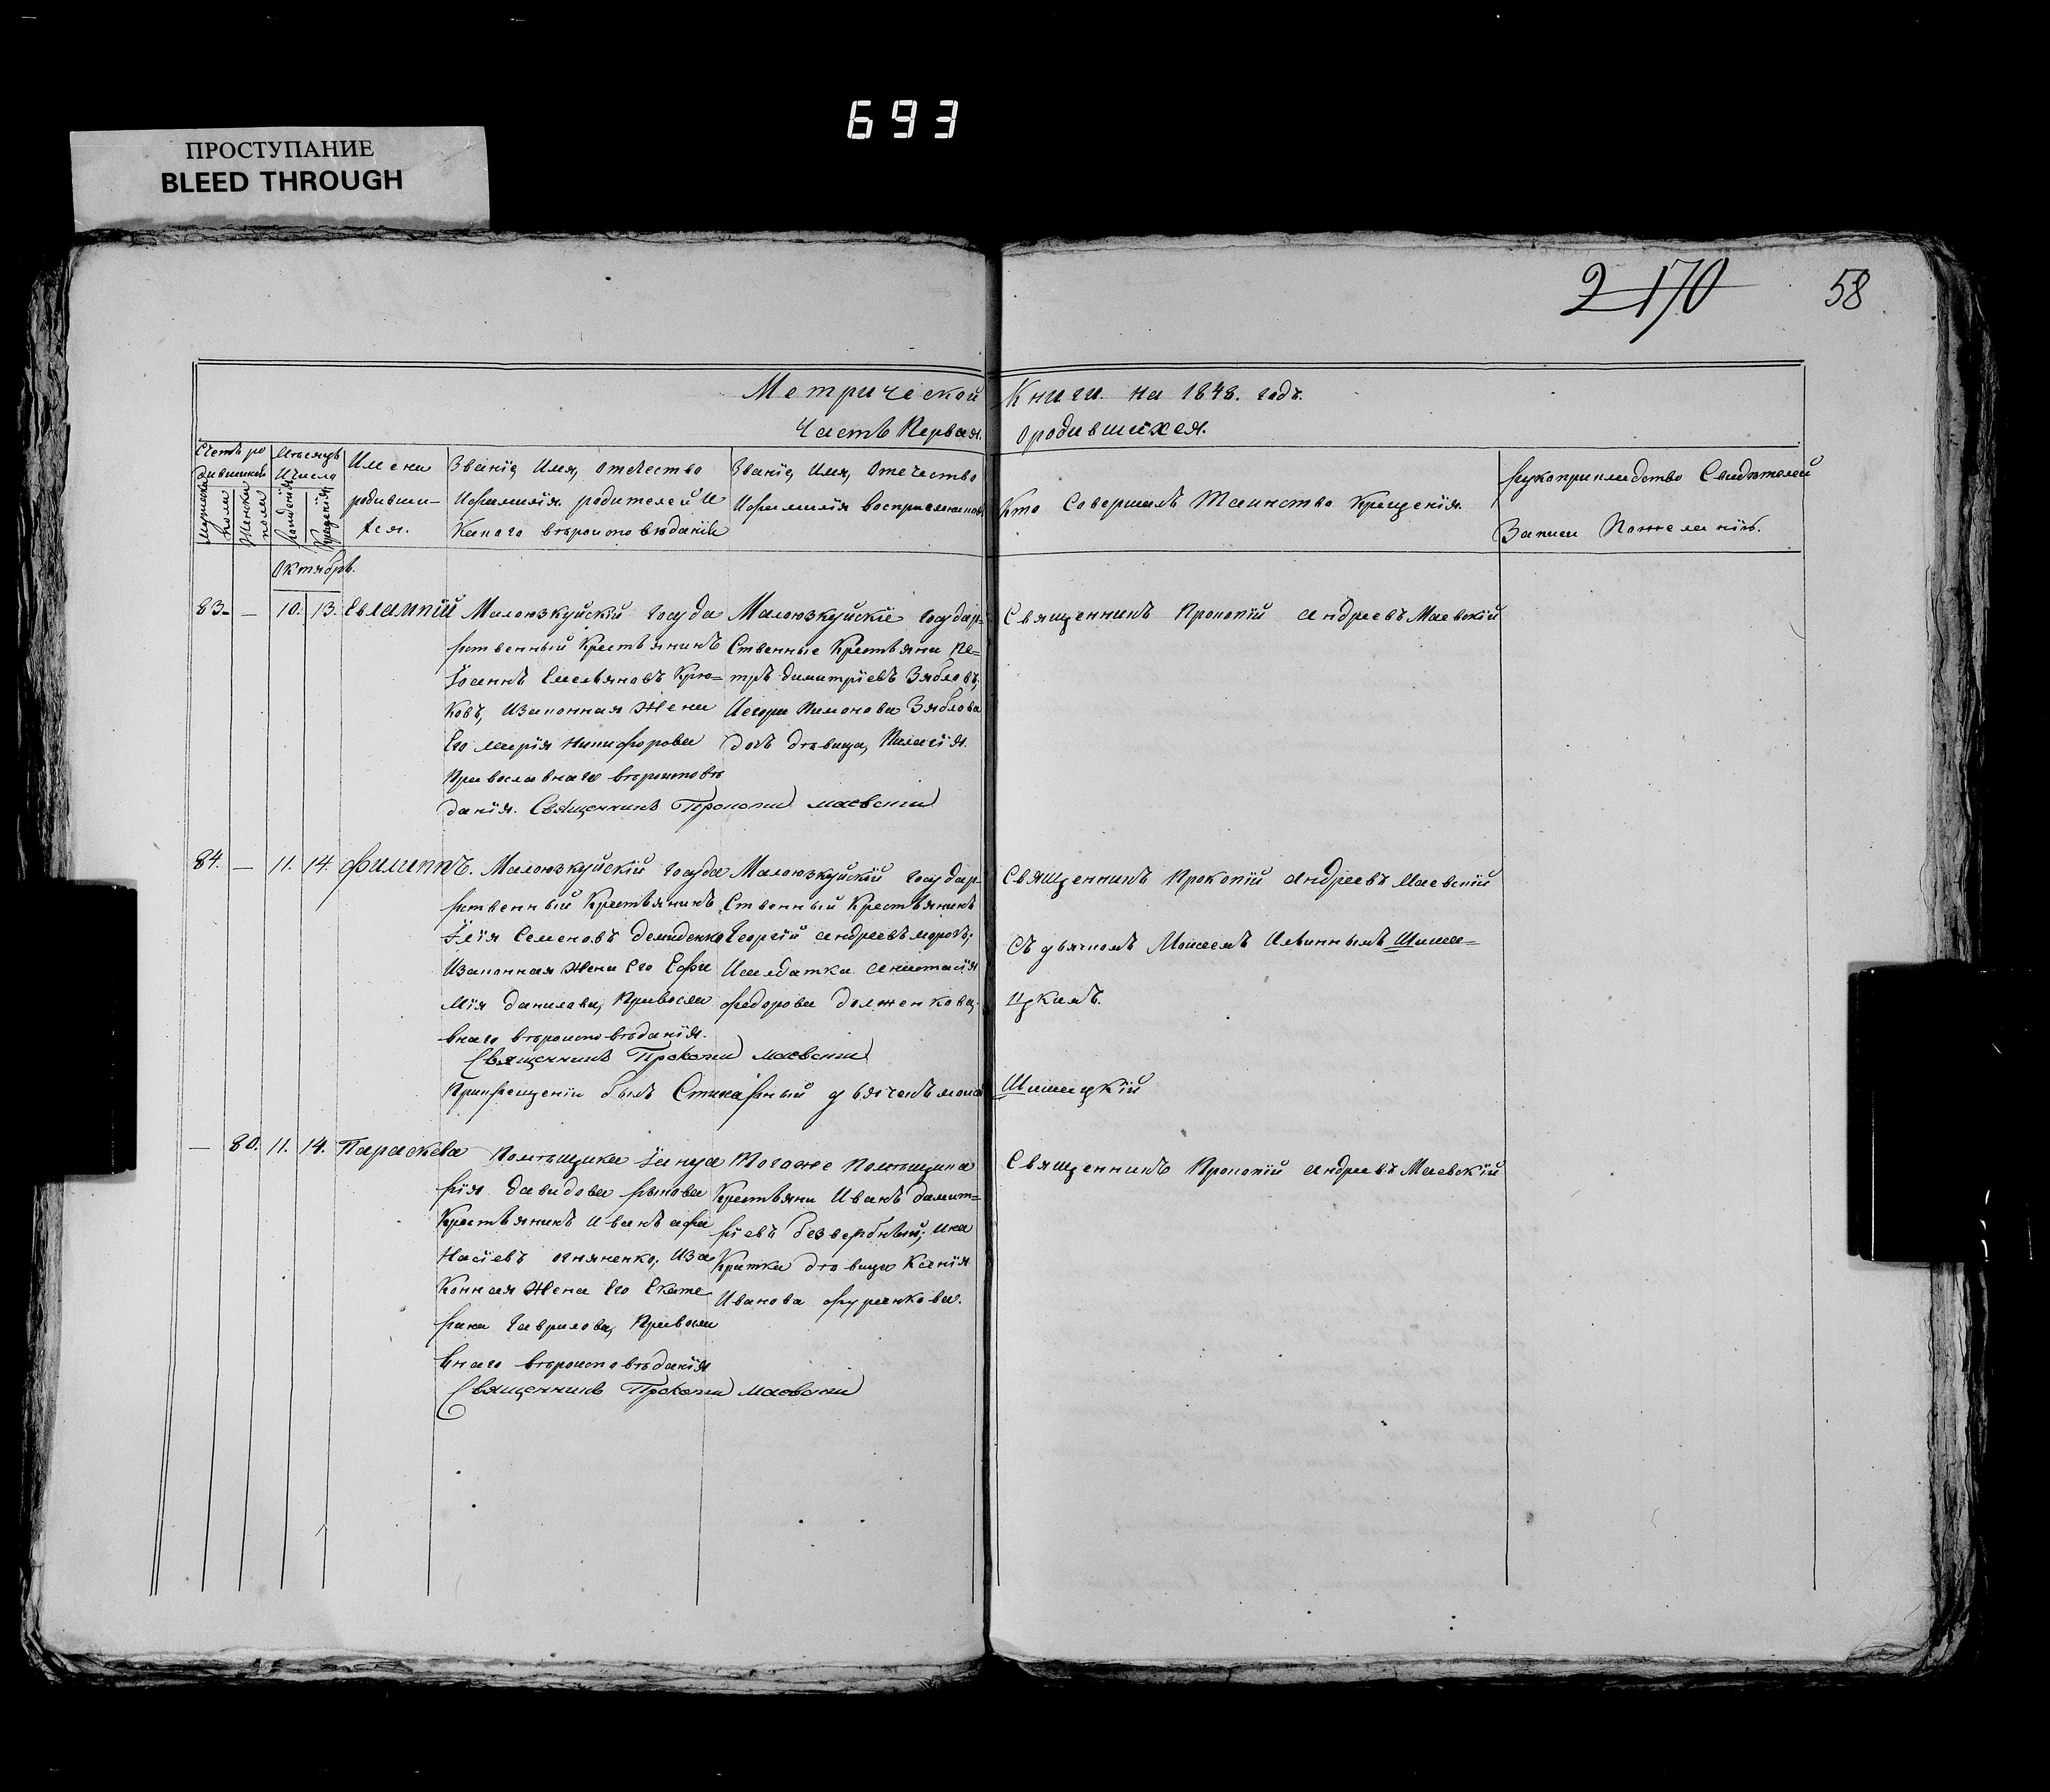 693
ПРОСТУПАНИЕ
BLEED THROUGH
2170
58
Метрической Книги на 1848. годъ.
Часть Первая. О родившихся.
Счетъ ро
дившихся
Мужеска
пола
Женска
пола
Мѣсяцъ
И число
Рожденія
Крещенія
Имена
родивши-
хся.
Званіе, Имя, отчество
И фамилія родителей и
Какого вѣроисповѣданія
Званіе, Имя, Отчество
И фамилія воспріемниковъ
Кто Совершалъ Таинство Крещенія.
Рукоприкладство Свидѣтелей
Записи По желанію.
Октябрь.
83. — 10. 13. Евлампій
Малоюзкуйскій госуда
рственный Крестьянинъ
Іоаннъ Емельяновъ Крю-
ковъ, Изаконная Жена
Его Марія Никифорова
Православнаго вѣроисповѣ
данія. Священникъ Прокопий Маевский
Малоюзкуйскіе государ-
Ственные Крестьяни Пе-
тръ Димитріевъ Зябловъ,
И егора Пимонова Зяблова
дочь дѣвица, Пелагія.
Священникъ Прокопій Андреевъ Маевскій
84. — 11. 14. Филиппъ.
Малоюзкуйскій госуда
рственный Крестьянинъ
Ілія Семеновъ Демиденко
Изаконная Жена Его Ефи
мія Данилова, Правосла
внаго вѣроисповѣданія.
Священникъ Прокопий Маевский
Малоюзкуйскій государ-
Ственный Крестьянинъ
Георгій Андреевъ Морозъ;
И салдатка Анастасія
Федорова Долженкова,
Священникъ Прокопій Андреевъ Маевскій
Съ дьячкомъ Моисеемъ Шиша-
цкимъ.
При крещеніи былъ Стихарный дьячекъ Моисей Шишацкій
— 80. 11. 14. Параскева
Помѣщика
рія Давидова Рыкова
Крестьянинъ Иванъ Афа
насіевъ Огняненко, Иза
конная Жена Его Екате
рина Гаврилова, Правосла
внаго вѣроисповѣданія
Священникъ Прокопий Маевский
Тогоже Помѣщика
Крестьяни Иванъ Димит-
ріевъ Безвербный; И на
дѣвица Ксенія
Иванова Фурсикова.
Священникъ Прокопій Андреевъ Маевскій